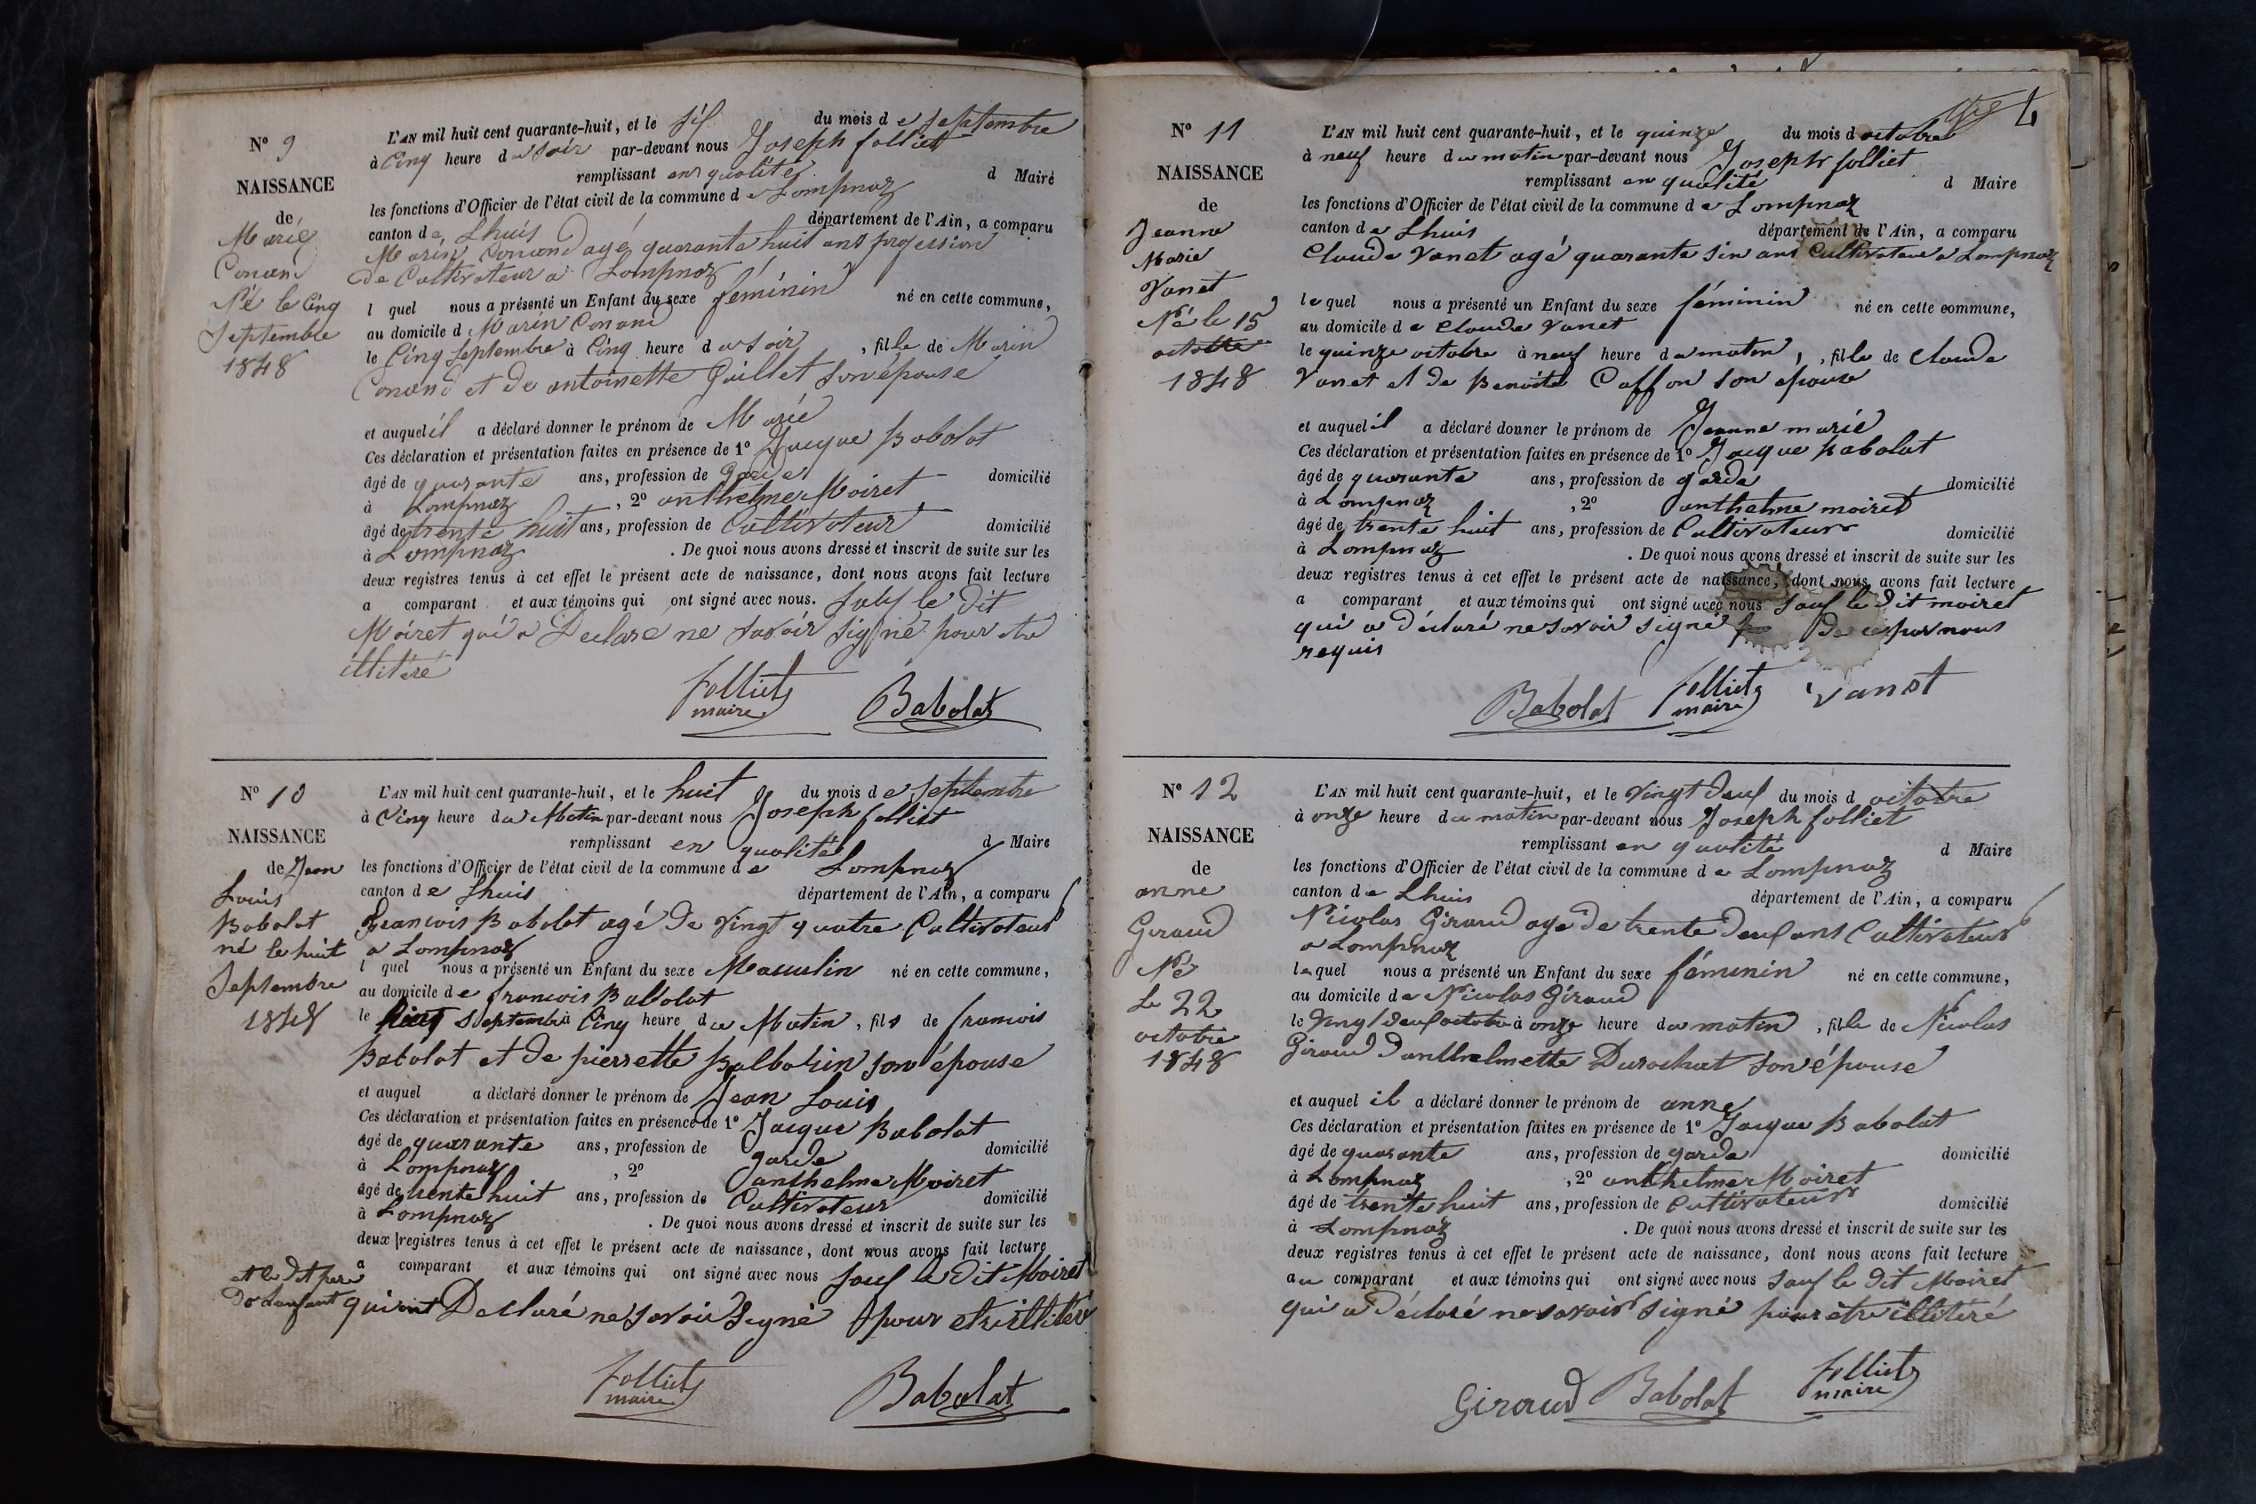 Nº 9
NAISSANCE
de
Marie
Conand
Né le Cinq
Septembre
1848
L'AN mil huit cent quarante-huit, et le six du mois de Septembre
à Cinq heure du soir par-devant nous Joseph folliet
remplissant en qualité d Maire
les fonctions d'Officier de l'état civil de la commune de Lompnaz
canton de Lhuis département de l'Ain, a comparu
Marin Conand agé quarante huit ans profession
de Cultivateur a Lompnaz
l quel nous a présenté un Enfant du sexe féminin né en cette commune,
au domicile d Marin Conand
le Cinq Septembre à Cinq heure du soir, fille de Marin
Conand et de antoinette Guillet son épouse
et auquel il a déclaré donner le prénom de Marie
Ces déclaration et présentation faites en présence de 1º Jacque Babolat
âgé de quarante ans, profession de garde domicilié
à Lompnaz, 2º anthelme Moiret
âgé de trente huit ans, profession de Cultivateur domicilié
à Lompnaz. De quoi nous avons dressé et inscrit de suite sur les
deux registres tenus à cet effet le présent acte de naissance, dont nous avons fait lecture
a comparant et aux témoins qui ont signé avec nous. Sauf le dit
Moiret qui a Declare ne savoir signé pour etre
illitéré
folliet
maire
Babolat
Nº 10
NAISSANCE
de Jean
Louis
Babolat
né le huit
Septembre
1848
L'AN mil huit cent quarante-huit, et le huit du mois de Septembre
à Cinq heure du Matin par-devant nous Joseph folliet
remplissant en qualité d Maire
les fonctions d'Officier de l'état civil de la commune de Lompnaz
canton de Lhuis département de l'Ain, a comparu
francois Babolat agé de Vingt quatre Cultivateur
a Lompnaz
l quel nous a présenté un Enfant du sexe Masculin né en cette commune,
au domicile de francois Babolat
le huit Septembre à Cinq heure du Matin, fils de francois
Babolat et de pierrette Balbarin son épouse
et auquel a déclaré donner le prénom de Jean Louis
Ces déclaration et présentation faites en présence de 1º Jacque Babolat
âgé de quarante ans, profession de garde domicilié
à Lompnaz, 2º anthelme Moiret
âgé de trente huit ans, profession de Cultivateur domicilié
à Lompnaz. De quoi nous avons dressé et inscrit de suite sur les
deux registres tenus à cet effet le présent acte de naissance, dont nous avons fait lecture
a comparant et aux témoins qui ont signé avec nous Sauf le dit Moiret
et le dit pere
de Lenfant qui ont Declaré ne savoir Signé pour etre illitéré
folliet
maire
Babolat
4
Nº 11
NAISSANCE
de
Jeanne
Marie
Vanet
Né le 15
octobre
1848
L'AN mil huit cent quarante-huit, et le quinze du mois d octobre
à neuf heure du matin par-devant nous Joseph folliet
remplissant en qualité d Maire
les fonctions d'Officier de l'état civil de la commune de Lompnaz
canton de Lhuis département de l'Ain, a comparu
Claude Vanet agé quarante six ans Cultivateur a Lompnaz
le quel nous a présenté un Enfant du sexe féminin né en cette commune,
au domicile de Claude Vanet
le quinze octobre à neuf heure du maton, fille de Claude
Vanet et de Benoite Caffon son epouse
et auquel il a déclaré donner le prénom de Jeanne marie
Ces déclaration et présentation faites en présence de 1º Jacque Babolat
âgé de quarante ans, profession de garde domicilié
à Lompnaz, 2º anthelme moiret
âgé de trente huit ans, profession de Cultivateur domicilié
à Lompnaz. De quoi nous avons dressé et inscrit de suite sur les
deux registres tenus à cet effet le présent acte de naissance, dont nous avons fait lecture
a comparant et aux témoins qui ont signé avec nous Sauf le dit moiret
qui a déclaré ne savoir signé de ce par nous
requis
Babolat
folliet
maire
Vanet
Nº 12
NAISSANCE
de
anne
Giraud
Né
Le 22
octobre
1848
L'AN mil huit cent quarante-huit, et le Vingt deux du mois d octobre
à onze heure du matin par-devant nous Joseph folliet
remplissant en qualité d Maire
les fonctions d'Officier de l'état civil de la commune de Lompnaz
canton de Lhuis département de l'Ain, a comparu
Nicolas Giraud age de trente deux ans Cultivateur
a Lompnaz
le quel nous a présenté un Enfant du sexe féminin né en cette commune,
au domicile de Nicolas Giraud
le Vingt deux octobre à onze heure du matin, fille de Nicolas
Giraud Danthelmette Durochat son épouse
et auquel il a déclaré donner le prénom de anne
Ces déclaration et présentation faites en présence de 1º Jacque Babolat
âgé de quarante ans, profession de garde domicilié
à Lompnaz, 2º anthelme Moiret
âgé de trente huit ans, profession de Cultivateur domicilié
à Lompnaz. De quoi nous avons dressé et inscrit de suite sur les
deux registres tenus à cet effet le présent acte de naissance, dont nous avons fait lecture
au comparant et aux témoins qui ont signé avec nous Sauf le dit Moiret
qui a déclaré ne savoir signé pour être illitéré
Giraud
Babolat
folliet
maire